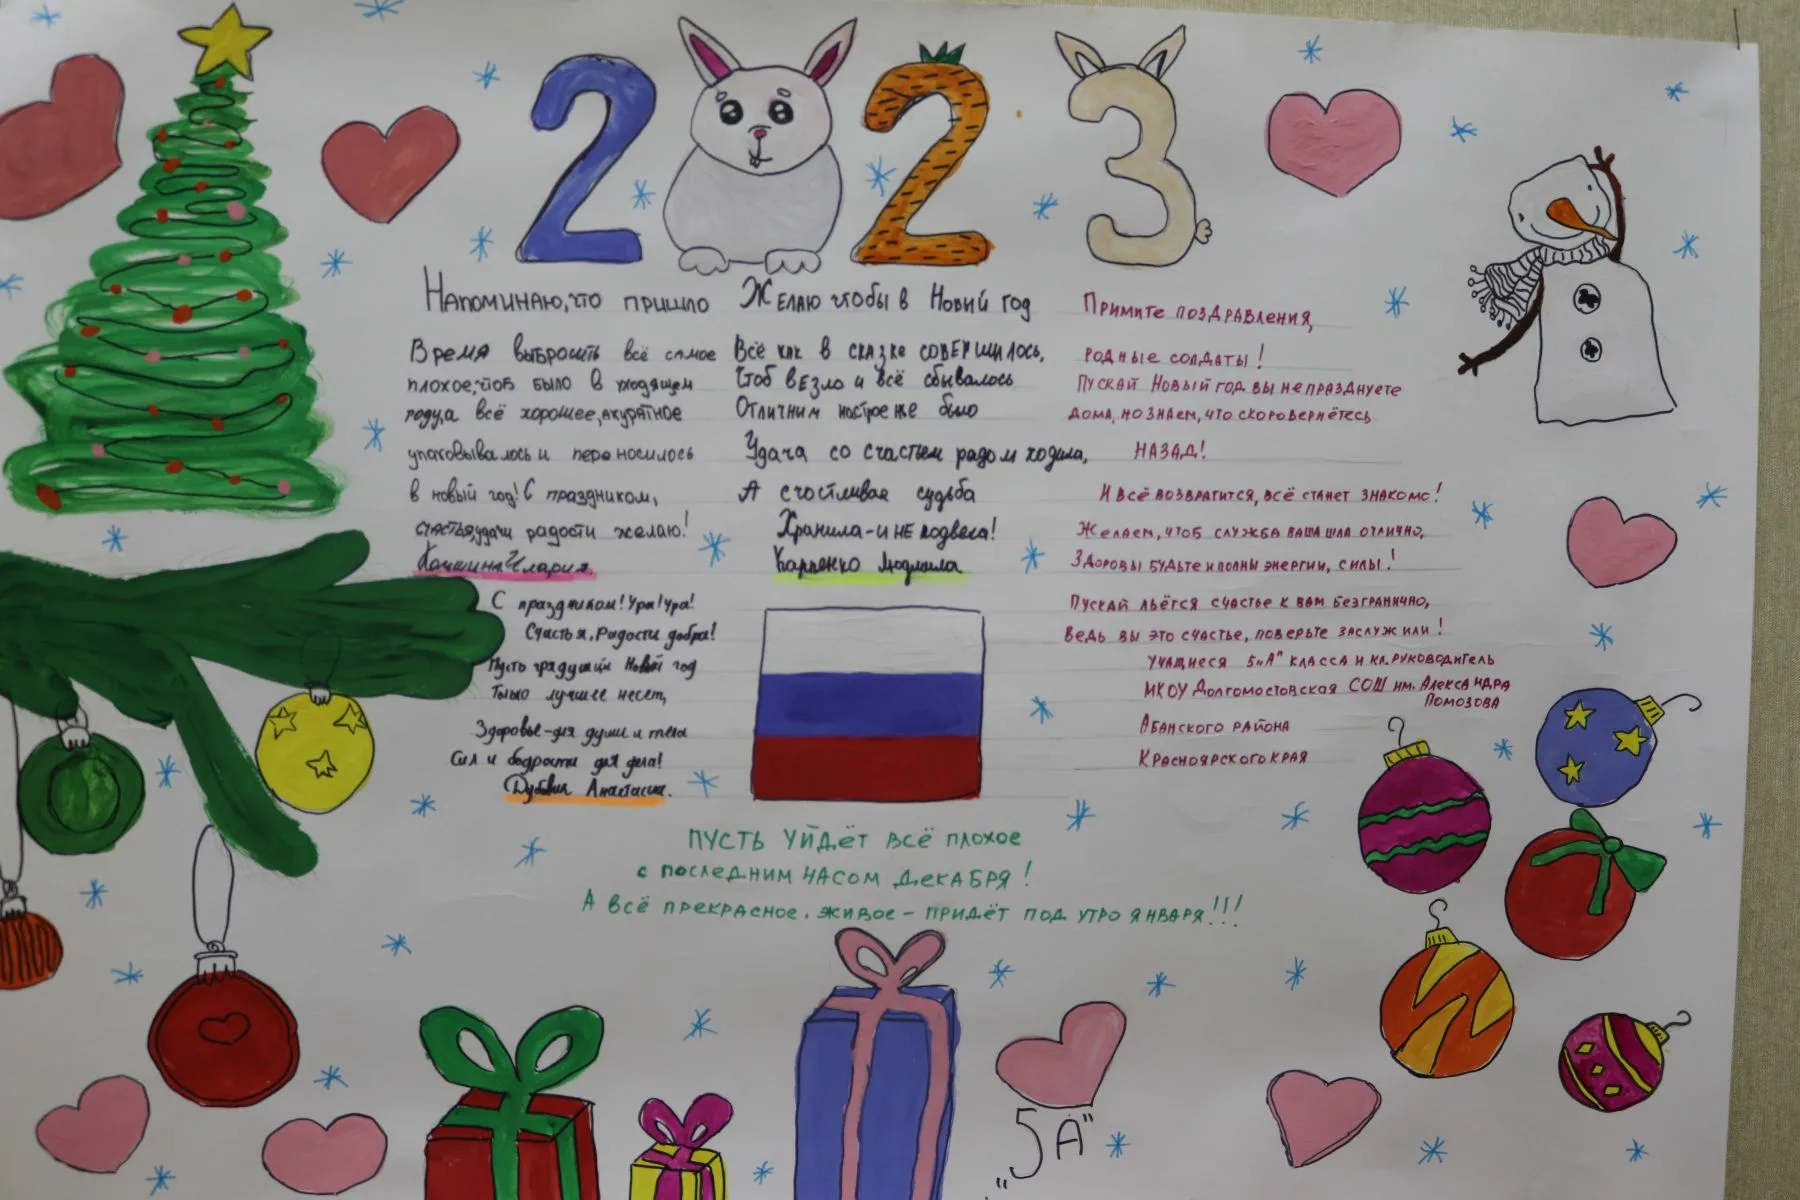 2 2 3
Напоминаю, что пришло
Время выбросить всё самое
плохое, что было в уходящем
году, а всё хорошее, акуратное
упаковывалось и переносилось
в новый год! С праздником,
счастья, удачи радости желаю!
Кокшина Илария.
С праздником! Ура! Ура!
Счастья, Радости добра!
Пусть грядущий Новый год
Только лучшее несет,
Здоровье-для души и тела
Сил и бодрости для дела!
Анастасия.
Желаю чтобы в Новий год
Всё как в сказке совершилось,
Чтоб везло и всё сбывалось
Отличним настроение было
Удача со счастьем рядом ходила,
А счостливая судьба
Хранила-и не подвела!
Карпенко Людмила
Примите поздравления,
родные солдаты!
Пускай Новый год вы не празднуете
дома, но знаем, что скоро вернётесь
назад!
И всё возвратится, всё станет знакомо!
Желаем, чтоб служба ваша шла отлично,
Здоровы будьте и полны энергии, силы!
Пускай льётся счастье к вам безгранично,
Ведь вы это счастье, поверьте заслужили!
учащиеся 5 "А" класса и кл. руководитель
МКОУ Долгомостовская СОШ им. Александра
Помозова
Абанского района
Красноярского края
Пусть уйдёт всё плохое
с последним часом декабря!
А всё прекрасное, живое - придёт под утро января!!!
"5 А"